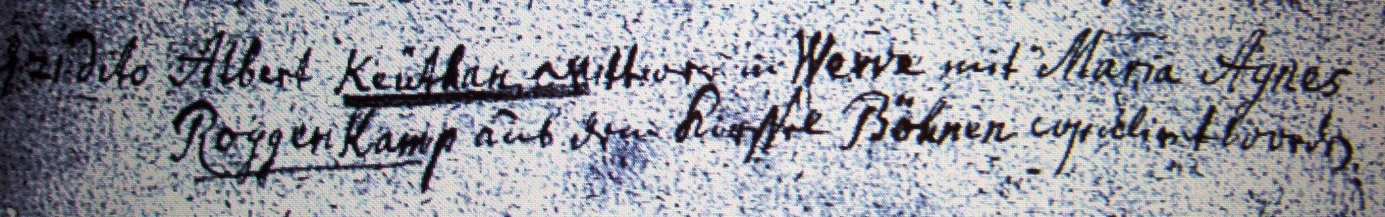 d. 21. dito Albert Keüthan Wittwer in Werve mit Maria Agnes
Roggenkamp aus dem Kirspel Böhnen copulirt word.